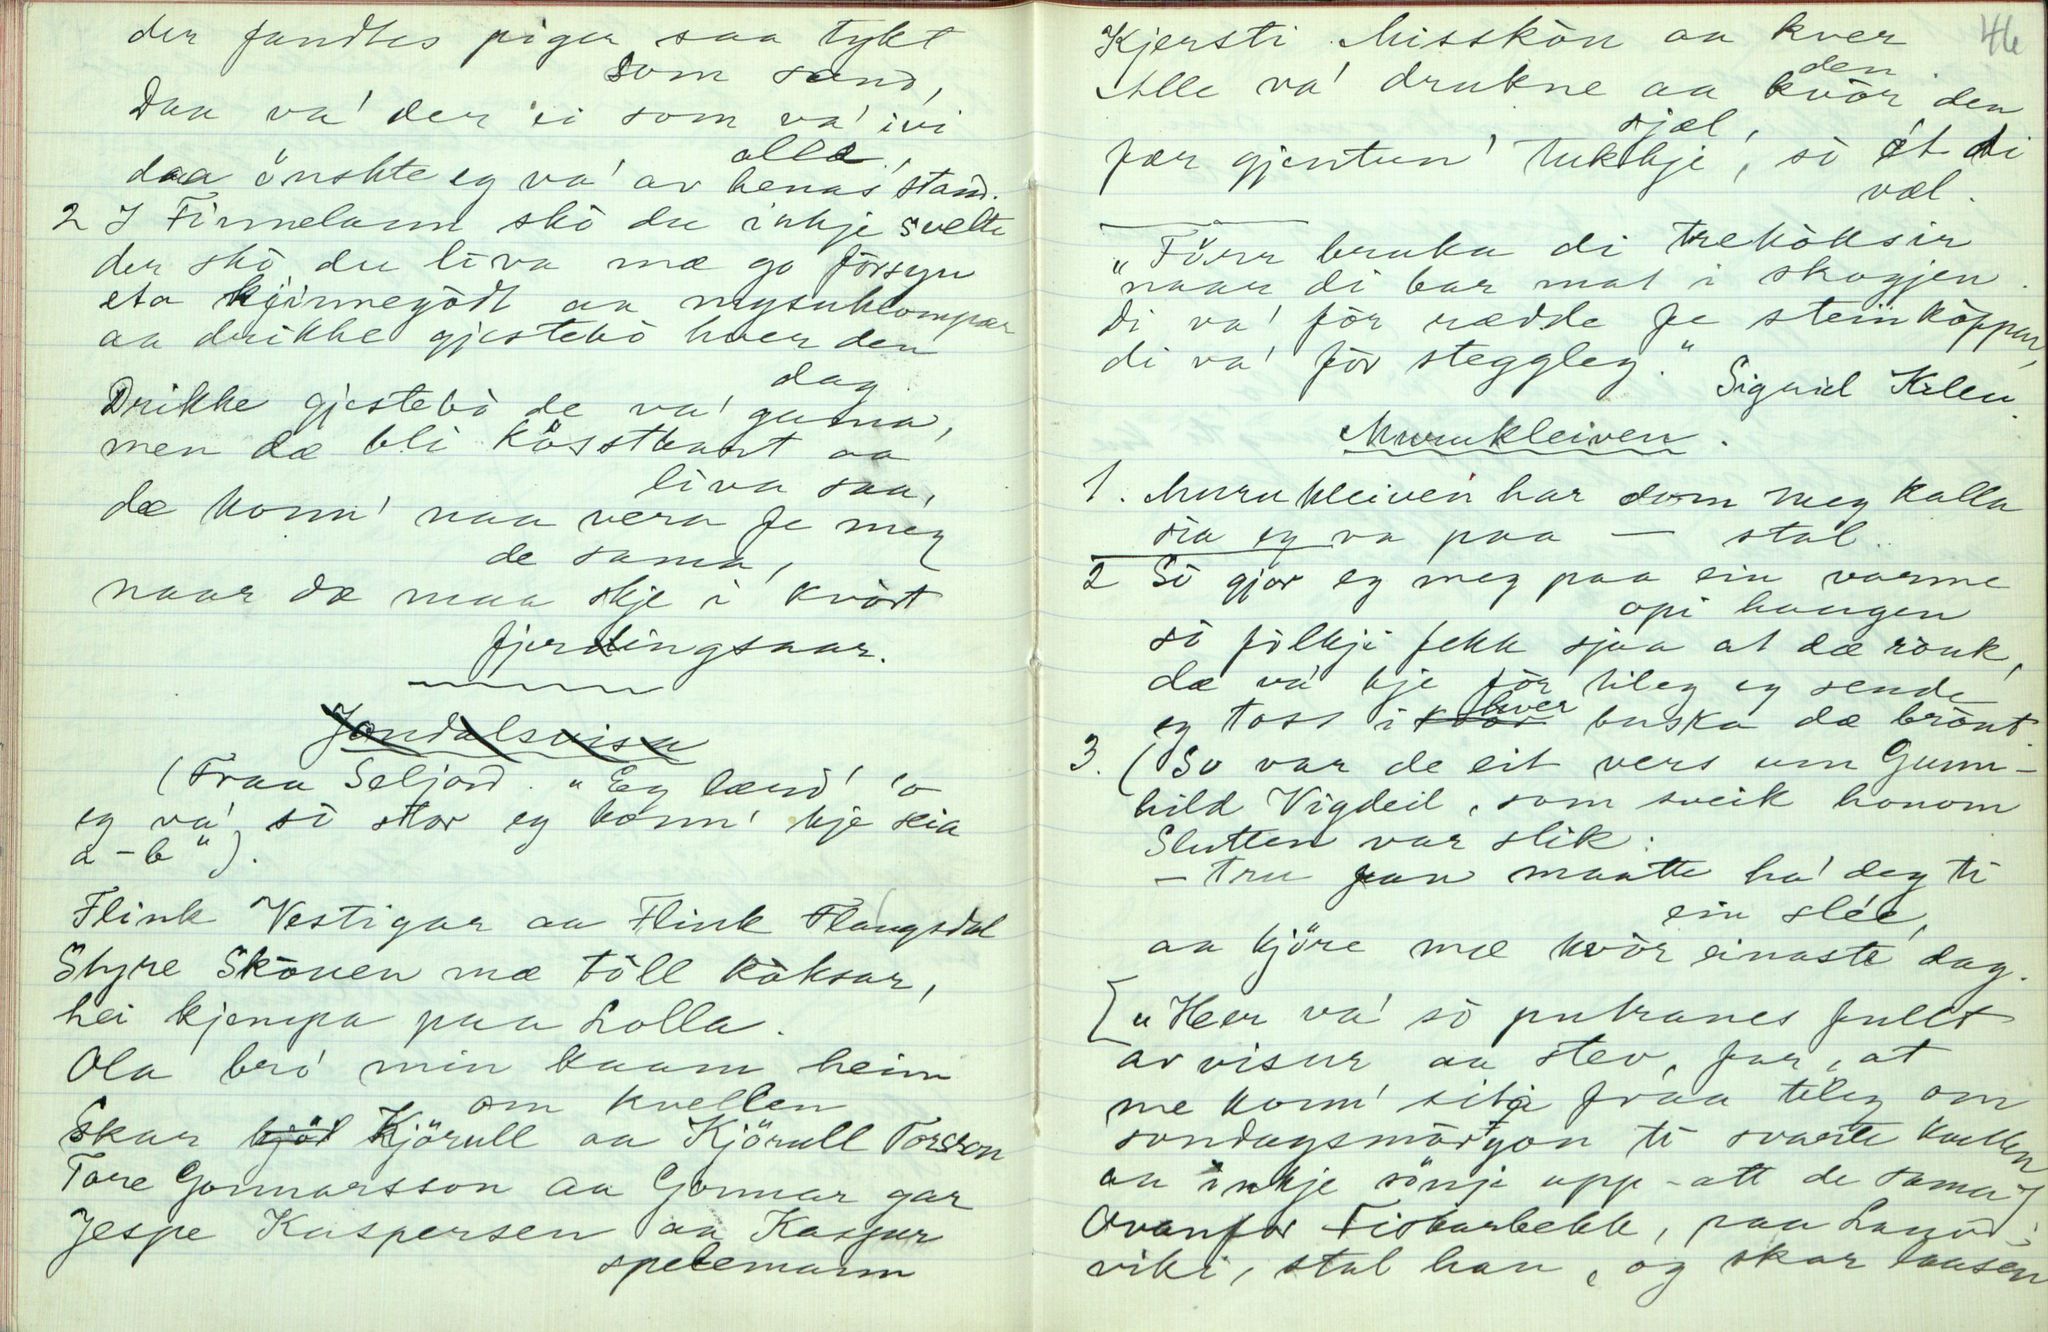 der fandtes piger saa tykt
som sand,
Daa va' der ei som va' ivi
alle,
daa önskte eg va' av henas' stand.
2 I Finnelann skò du inkje svelte
der skò du liva mæ go försyn
eta kjinnegòdt aa mysuklompar
aa drikke gjestebò hver den
dag.
Drikke gjestebò de va' gama,
men dæ bli kösstbart aa
liva saa,
dæ konn' naa vera fe meg
de sama,
naar dæ maa skje i kvòrt
fjerdingsaar.
Jondalsvisa
(Fraa Seljord. "Eg lærd' 'o
eg va' sò stor eg konn' kje seia
a-b").
Flink Vestigar aa Flink Flaugsdal
Styre Skòuen mæ tòll kòksar,
hei kjempa paa Lolla.
Ola bró min kaam heim
om kvellen
Skar kjöl Kjörull aa Kjörull Torsson
Tore Gonnarsson aa Gonnar gar
Jespe Kaspersen aa Kaspar
spelemann
46
Kjersti Misskòn aa kver
Alle va' drukne aa kvòr den den
sjæl,
fær gjentun' tukkje', sò åt di
væl.
"Förr bruka di treköksir
naar di bar mat i skogjen.
Di va' för rædde fe steinköppan,
di va' för steggleg."
Sigrid Kleiv.
Murukleiven.
1. Murukleiven har dom meg kalla
sia eg va paa — stal.
2 Sò gjor eg meg paa ein varme
opi haugen
sò fólkji fekk sjaa at dæ ròuk,
dæ va' kje för tileg eg sende
eg toss i kvòr hver buska dæ brönt.
3. (So var de eit vers um Gunn-
hild Vigdeil, som sveik honom
Slutten var slik:
— tru fan maatte ha' deg ti
ein slée,
aa kjöre mæ kvòr einaste dag.
["Her va' sò putranes fullt
av visur aa stev, far, at
me konn' sita fraa tileg om
sondagsmòrgon ti svarte kvellen
aa inkje sönji opp-att de sama]
Ovanfor Fiskarbekk, paa Langòd-
viki, stal han, og skar laasen